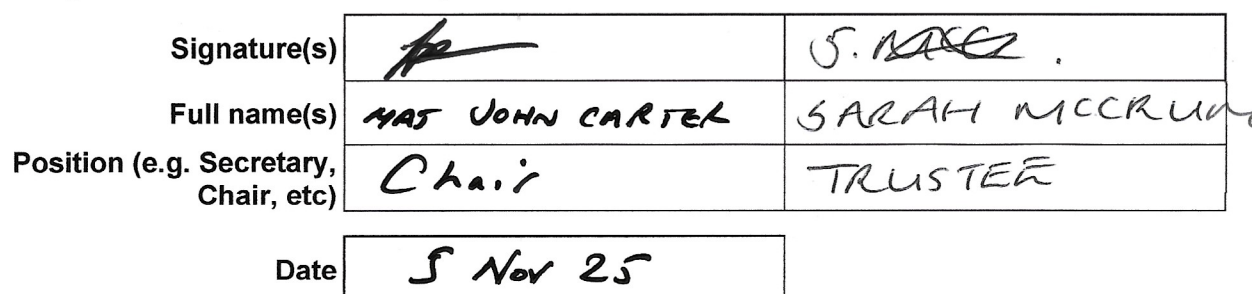 Signature(s) S.
Full name(s) MAJ JOHN CARTER SARAH MCCRUM
Position (e.g. Secretary, Chair, etc) Chair TRUSTEE
Date 5 Nov 25